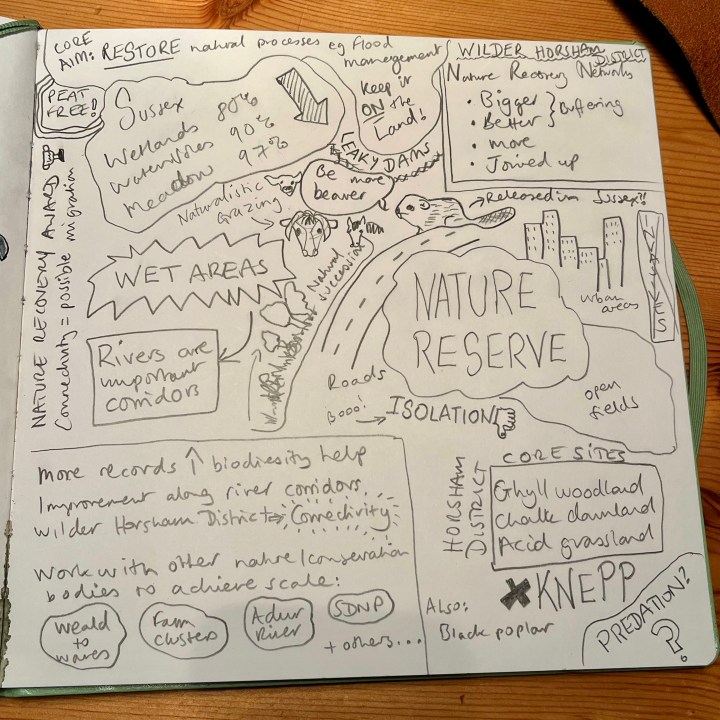 CORE
AIM: RESTORE natural processes eg flood
management
Keep it
ON the
Land!
PEAT
FREE!
Sussex
Wetlands 80%
Watervoles 90%
Meadow 97%
WILDER HORSHAM DISTRICT
Nature Recovery Networks
• Bigger
• Better } Buffering
• more
• Joined up
LEAKY DAMS
Be more
beaver
→ Released in Sussex!!
Naturalistic
Grazing
Natural
succession
NATURE RECOVERY AWARD
Connectivity = possible migration
WET AREAS
Rivers are
important
corridors
NATURE
RESERVE
urban
areas
Roads
Booo!
→ ISOLATION
open
fields
More records ↑ biodiesity help
Improvement along river corridors
Wilder Horsham District → Connectivity
Work with other nature/conservation
bodies to achieve scale:
Weald
to
waves
Farm
clusters
Adur
River
SDNP
+ others...
HORSHAM
DISTRICT
CORE SITES
Ghyll woodland
Chalk downland
Acid grassland
KNEPP
Also:
Black poplar
PREDATION?
?